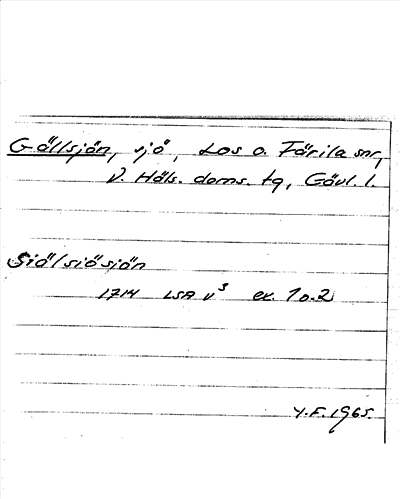 Gällsjön, sjö, Los o. Färila snr,
V. Häls. doms. tg, Gävl. l.
Siälsiösjön
1714 LSA V³ ex. 1 o. 2
Y.F. 1965.